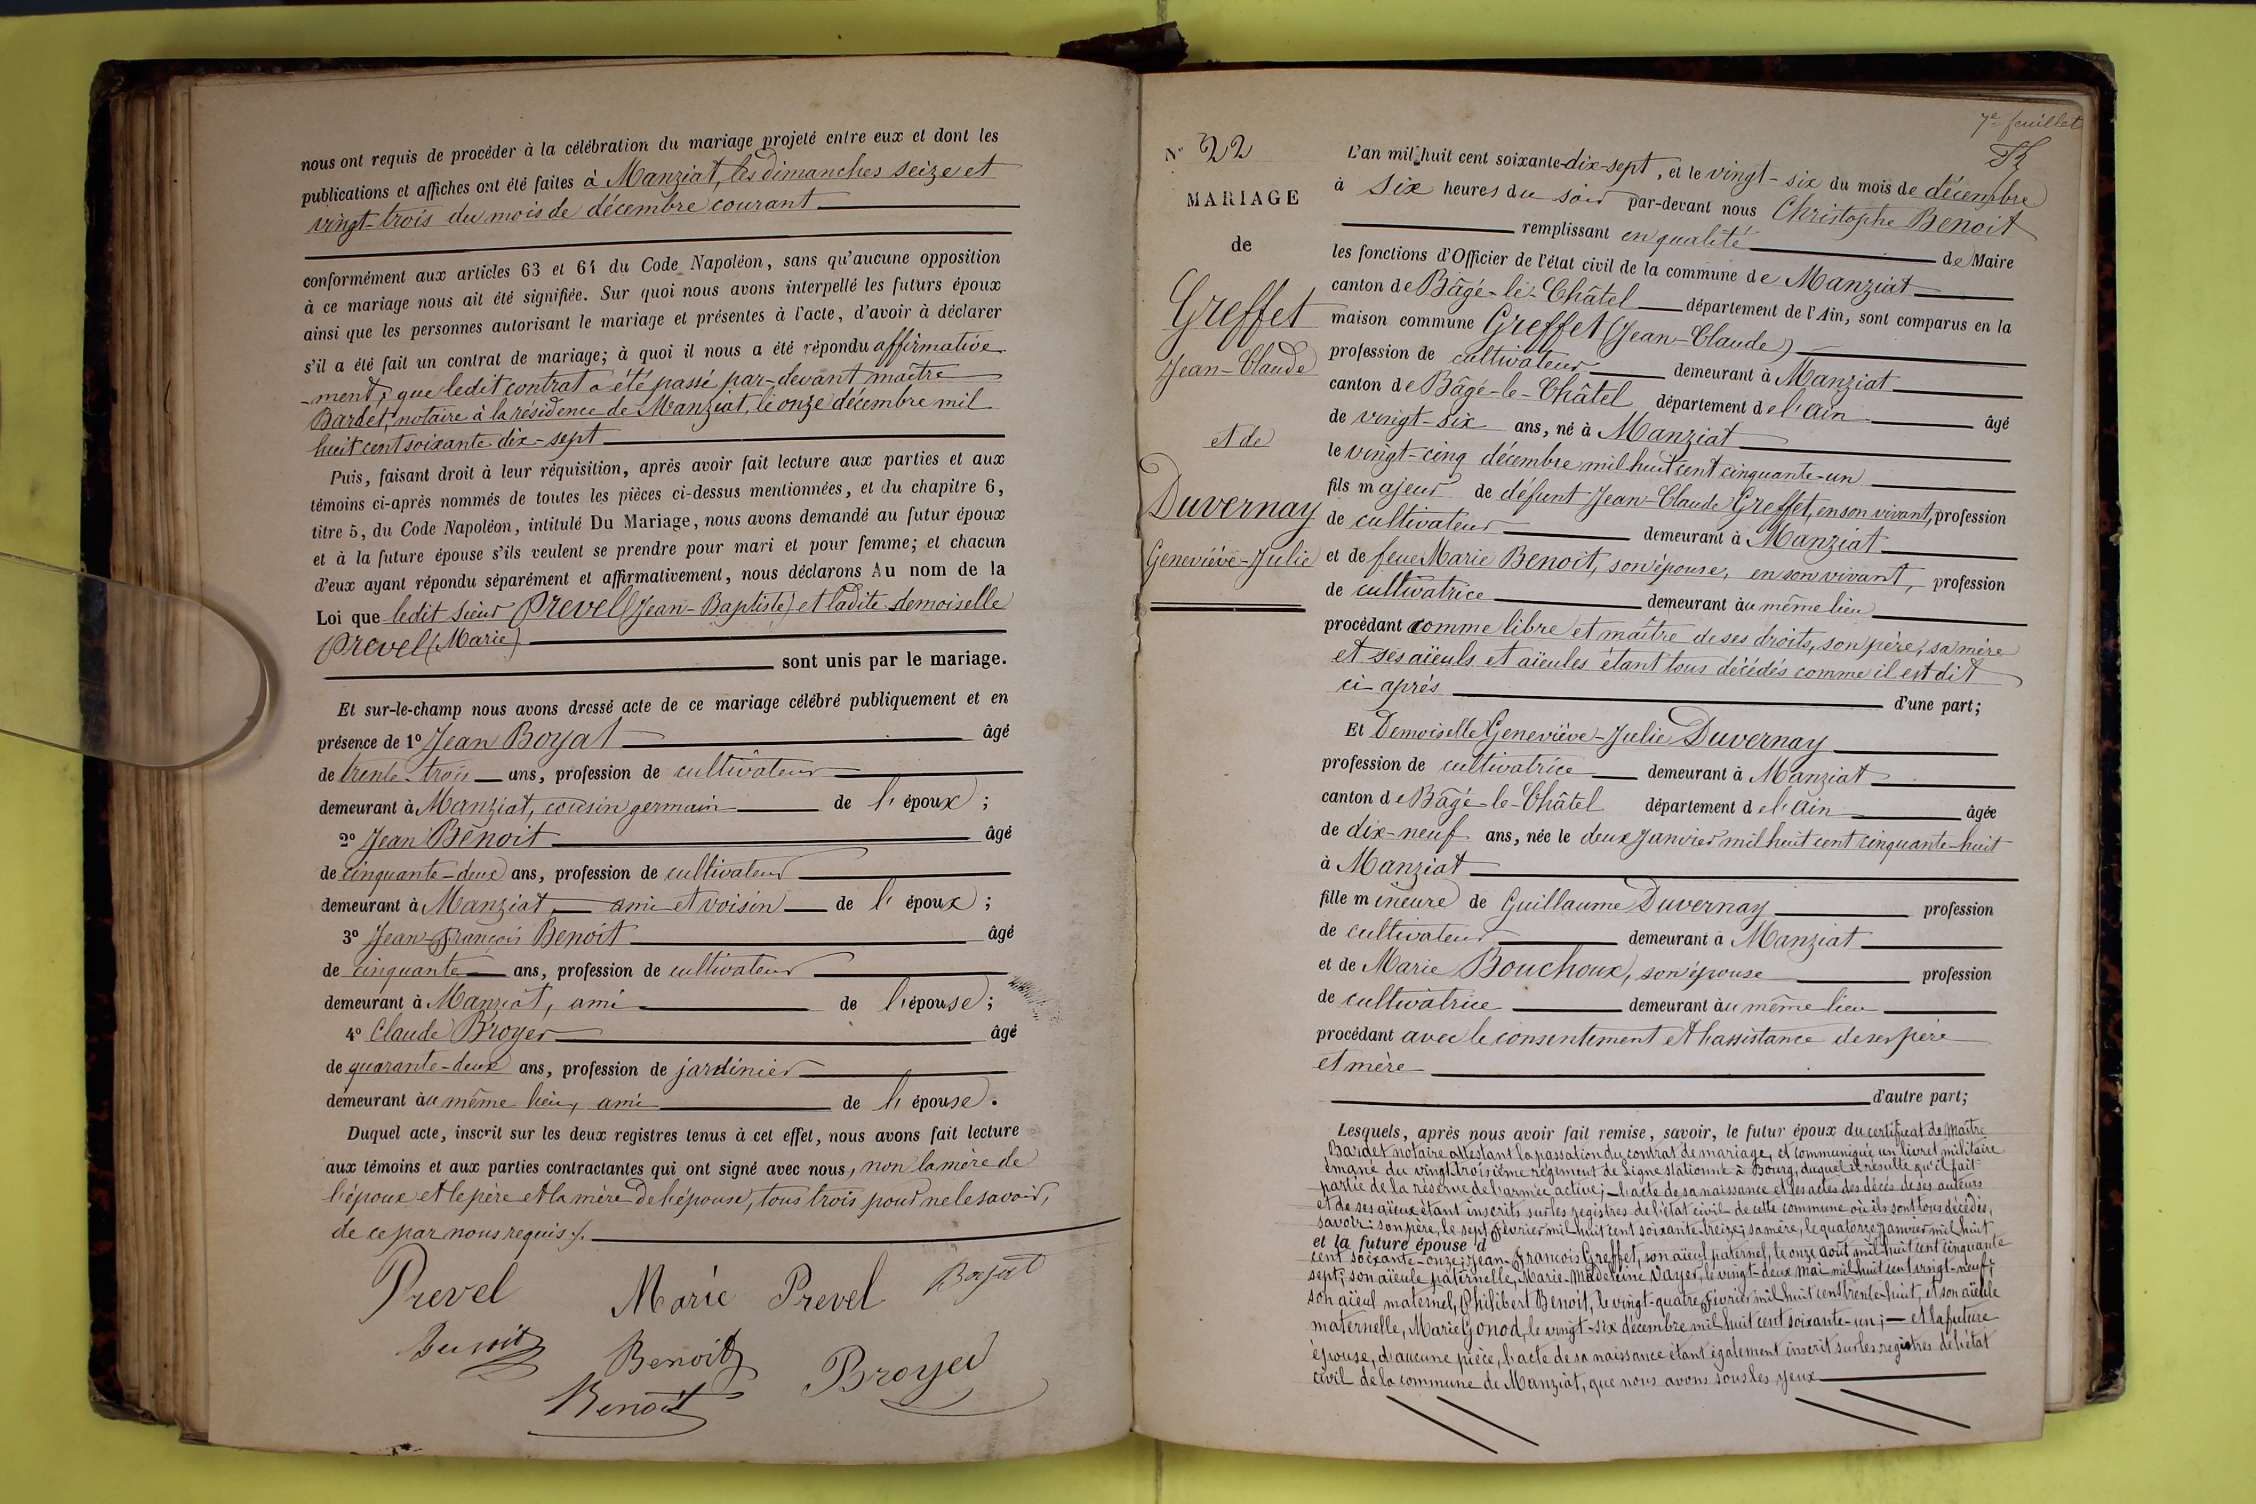 nous ont requis de procéder à la célébration du mariage projeté entre eux et dont les
publications et affiches ont été faites à Manziat, les dimanches seize et
vingt-trois du mois de décembre courant
conformément aux articles 63 et 64 du Code Napoléon, sans qu'aucune opposition
à ce mariage nous ait été signifiée. Sur quoi nous avons interpellé les futurs époux
ainsi que les personnes autorisant le mariage et présentes à l'acte, d'avoir à déclarer
s'il a été fait un contrat de mariage; à quoi il nous a été répondu affirmative
-ment, que ledit contrat a été passé par-devant maître
Bardet, notaire à la résidence de Manziat, le onze décembre mil
huit cent soixante dix-sept
Puis, faisant droit à leur réquisition, après avoir fait lecture aux parties et aux
témoins ci-après nommés de toutes les pièces ci-dessus mentionnées, et du chapitre 6,
titre 5, du Code Napoléon, intitulé Du Mariage, nous avons demandé au futur époux
et à la future épouse s'ils veulent se prendre pour mari et pour femme; et chacun
d'eux ayant répondu séparément et affirmativement, nous déclarons Au nom de la
Loi que ledit sieur Prevel (Jean-Baptiste) et ladite demoiselle
Prevel (Marie)
sont unis par le mariage.
Et sur-le-champ nous avons dressé acte de ce mariage célébré publiquement et en
présence de 1º Jean Boyat âgé
de trente-trois ans, profession de cultivateur
demeurant à Manziat, cousin germain de l'époux;
2º Jean Benoit âgé
de cinquante-deux ans, profession de cultivateur
demeurant à Manziat ami et voisin de l'époux;
3º Jean François Benoit âgé
de cinquante ans, profession de cultivateur
demeurant à Manziat, ami de l'épouse;
4º Claude Broyer âgé
de quarante-deux ans, profession de jardinier
demeurant au même lieu, ami de l'épouse.
Duquel acte, inscrit sur les deux registres tenus à cet effet, nous avons fait lecture
aux témoins et aux parties contractantes qui ont signé avec nous, non la mère de
l'époux et le père et la mère de l'épouse, tous trois pour ne le savoir,
de ce par nous requis ./.
Prevel Marie Prevel Boyat
Benoit Benoit Broyer
Benoit
7e feuillet
Nº 22
MARIAGE
de
Greffet
Jean-Claude
et de
Duvernay
Geneviève-Julie
L'an mil huit cent soixante-dix-sept, et le vingt-six du mois de décembre
à six heures du soir par-devant nous Christophe Benoit
remplissant en qualité de Maire
les fonctions d'Officier de l'état civil de la commune de Manziat
canton de Bâgé-le-Châtel département de l'Ain, sont comparus en la
maison commune Greffet (Jean-Claude)
profession de cultivateur demeurant à Manziat
canton de Bâgé-le-Châtel département de l'ain âgé
de vingt-six ans, né à Manziat
le vingt-cinq décembre mil huit cent cinquante-un
fils majeur de défunt Jean-Claude Greffet, en son vivant, profession
de cultivateur demeurant à Manziat
et de feue Marie Benoit, son épouse, en son vivant, profession
de cultivatrice demeurant au même lieu
procédant comme libre et maître de ses droits, son père, sa mère
et ses aïeuls et aïeules étant tous décédés comme il est dit
ci-après d'une part;
Et Demoiselle Geneviève-Julie Duvernay
profession de cultivatrice demeurant à Manziat
canton de Bâgé-le-Châtel département de l'ain âgée
de dix-neuf ans, née le deux Janvier mil huit cent cinquante-huit
à Manziat
fille mineure de Guillaume Duvernay profession
de cultivateur demeurant à Manziat
et de Marie Bouchoux, son épouse profession
de cultivatrice demeurant au même lieu
procédant avec le consentement et l'assistance de ses père
et mère
d'autre part;
Lesquels, après nous avoir fait remise, savoir, le futur époux du certificat de Maître
Bardet notaire attestant la passation du contrat de mariage, et communiqué un livret militaire
émané du vingt-troisième régiment de Ligne stationné à Bourg, duquel il résulte qu'il fait
partie de la réserve de l'armée active; l'acte de sa naissance et les actes des décès de ses auteurs
et de ses aïeux étant inscrits sur les registres de l'état civil de cette commune où ils sont tous décédés,
savoir: son père, le sept Février mil huit cent soixante treize; sa mère, le quatorze janvier mil huit
et la future épouse d
cent soixante-onze; Jean-François Greffet, son aïeul paternel, le onze août mil huit cent cinquante
sept; son aïeule paternelle, Marie-Madeleine Vayer, le vingt-deux mai mil huit cent vingt-neuf;
son aïeul maternel, Philibert Benoit, le vingt-quatre Février mil huit cent trente-huit, et son aïeule
maternelle, Marie Gonod, le vingt-six décembre mil huit cent soixante-un; — et la future
épouse, d'aucune pièce, l'acte de sa naissance étant également inscrit sur les registres de l'état
civil de la commune de Manziat, que nous avons sous les yeux